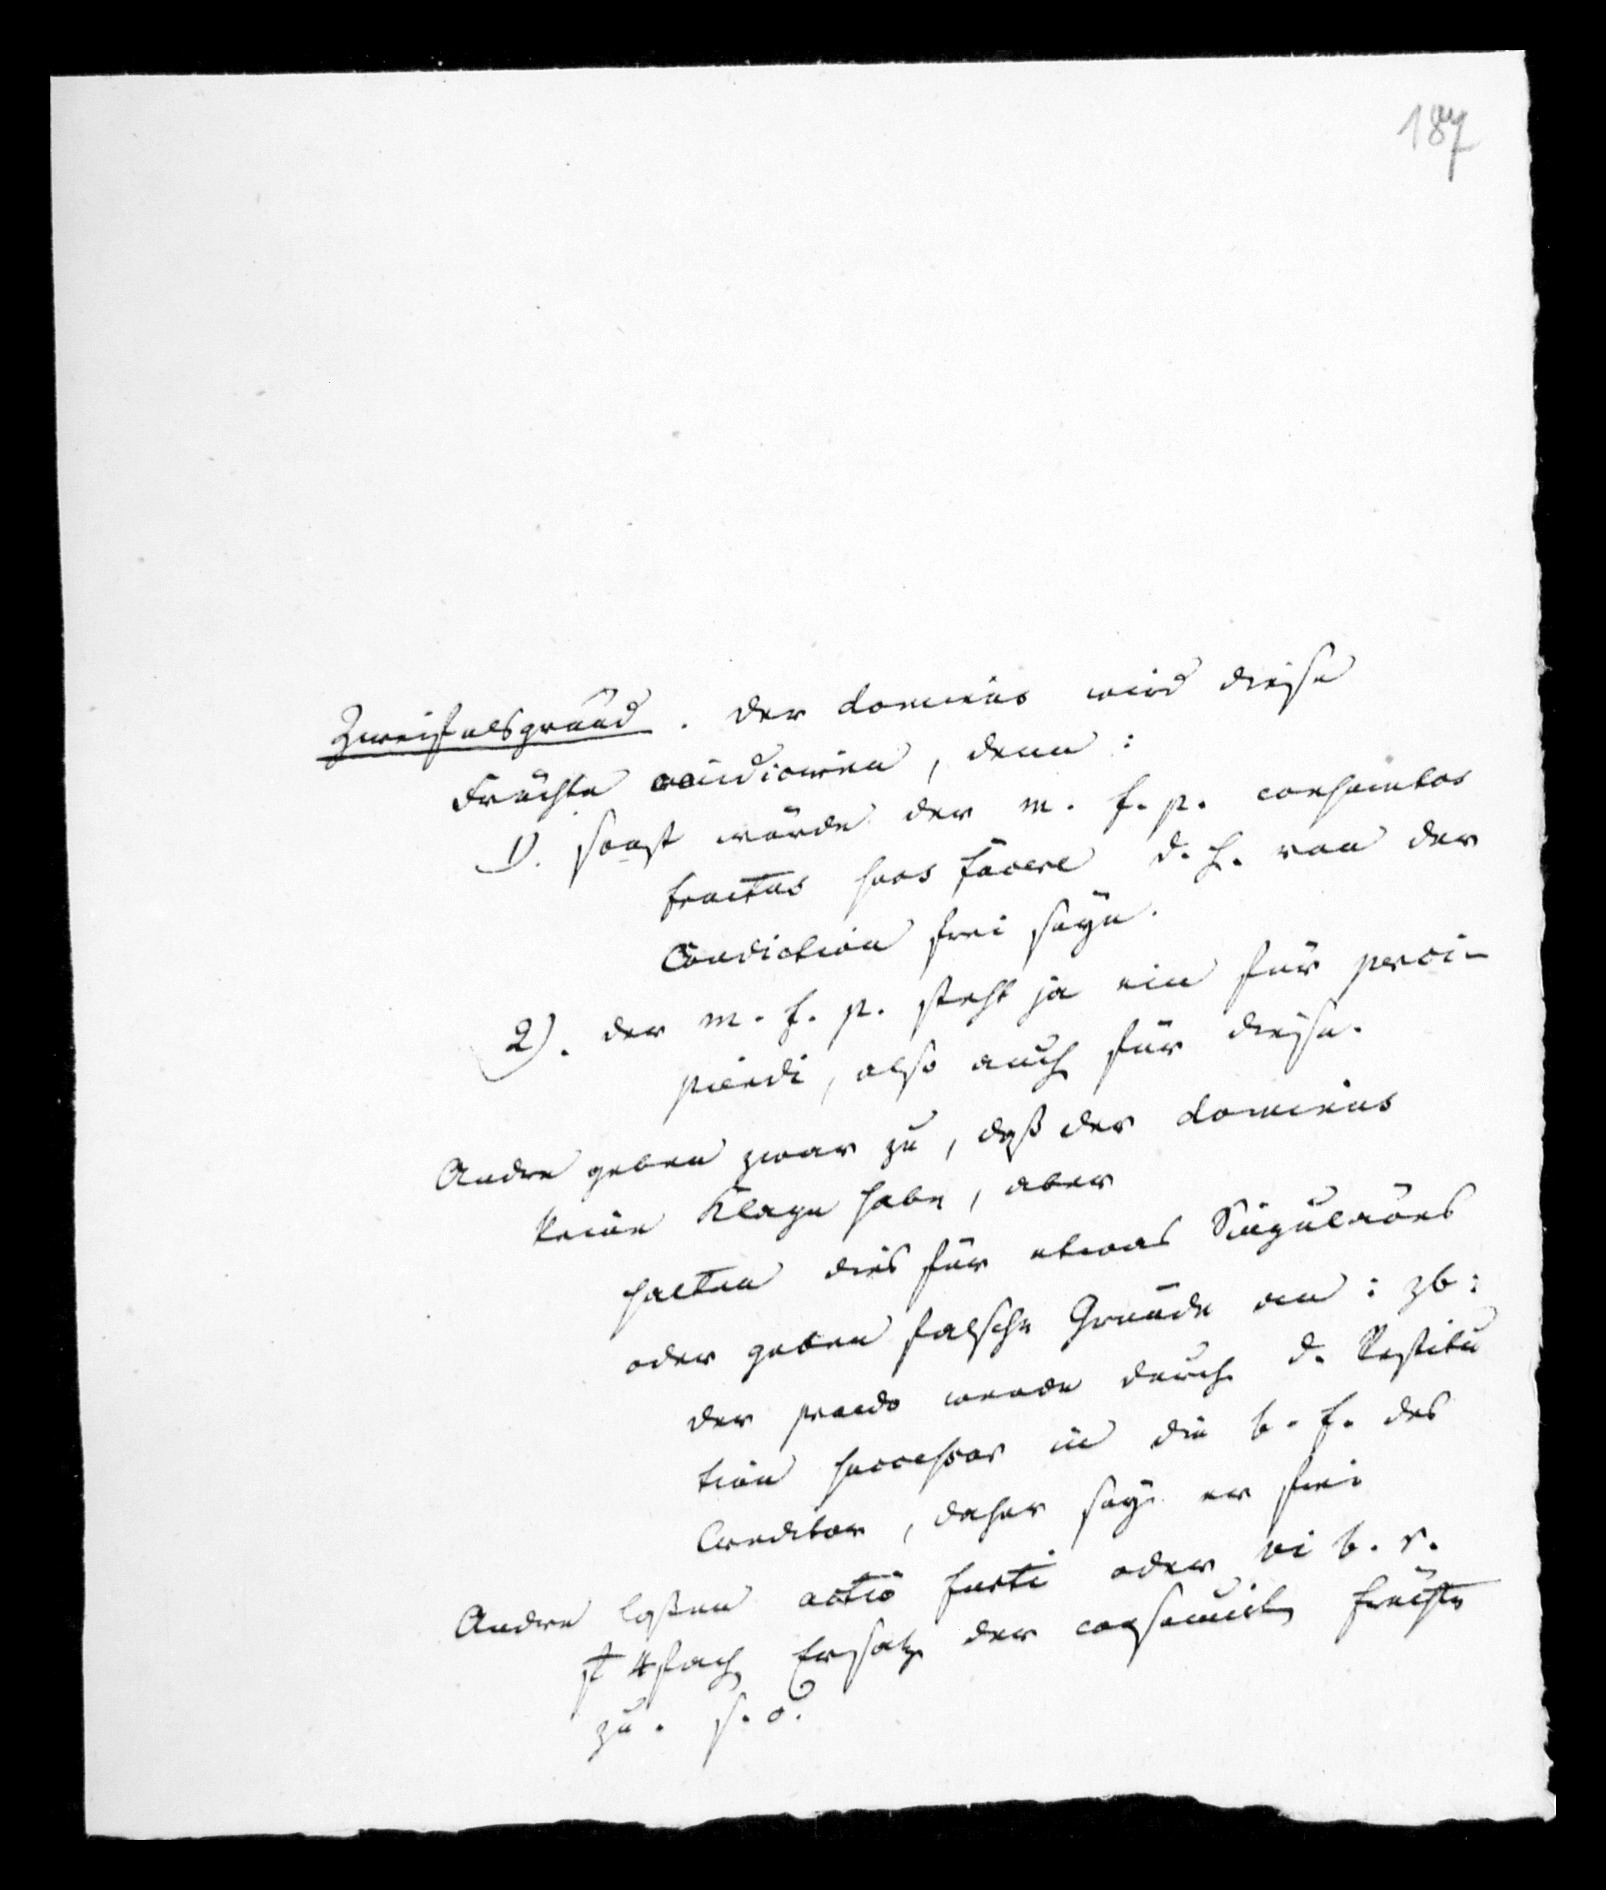 187
Zweifelsgrund. Der dominus wird diese
Früchte vindiciren, denn:
1). sonst würde der m. f. p. consumtos
fructus suos facere d. h. von der
Condiction frei seyn.
2). der m. f. p. steht ja ein für perci-
piendi, also auch für diese.
Andre geben zwar zu, daß der dominus
keine Klage habe, aber
halten dies für etwas Singuläres
oder geben falsche Gründe an: zb:
der praedo werde durch d. Restitu
tion successor in die b. f. des
Creditor, daher sey er frei
Andre laßen actio furti oder vi b. r.
4fach Ersatz der consumirten Früchte
zu. s. o.